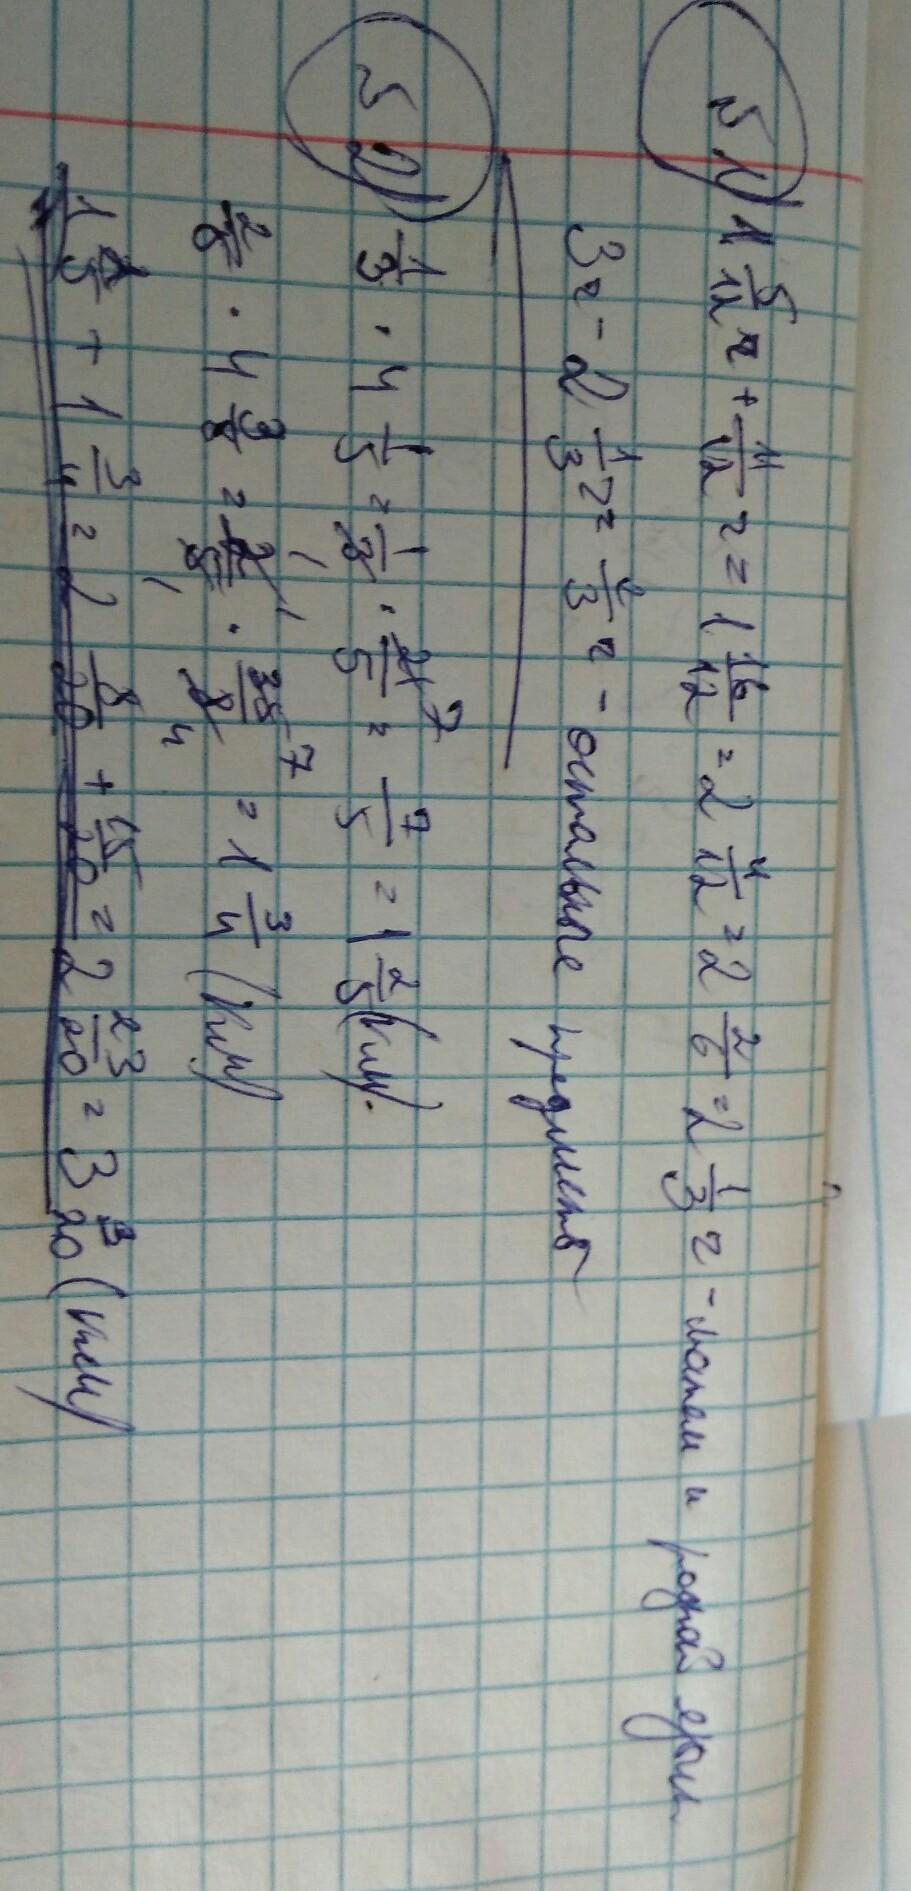 5 1) 1 5/12 ч + 11/12 ч = 1 16/12 = 2 4/12 = 2 2/6 = 2 1/3 ч - матем и родной язык
3 ч - 2 1/3 ч = 2/3 ч - остальные предметы
5 2) 1/3 · 4 1/5 = 1/3 · 21/5 = 7/5 = 1 2/5 (км).
2/5 · 4 3/8 = 2/5 · 35/8 = 1 3/4 (км)
1 2/5 + 1 3/4 = 2 8/20 + 15/20 = 2 23/20 = 3 3/20 (км)